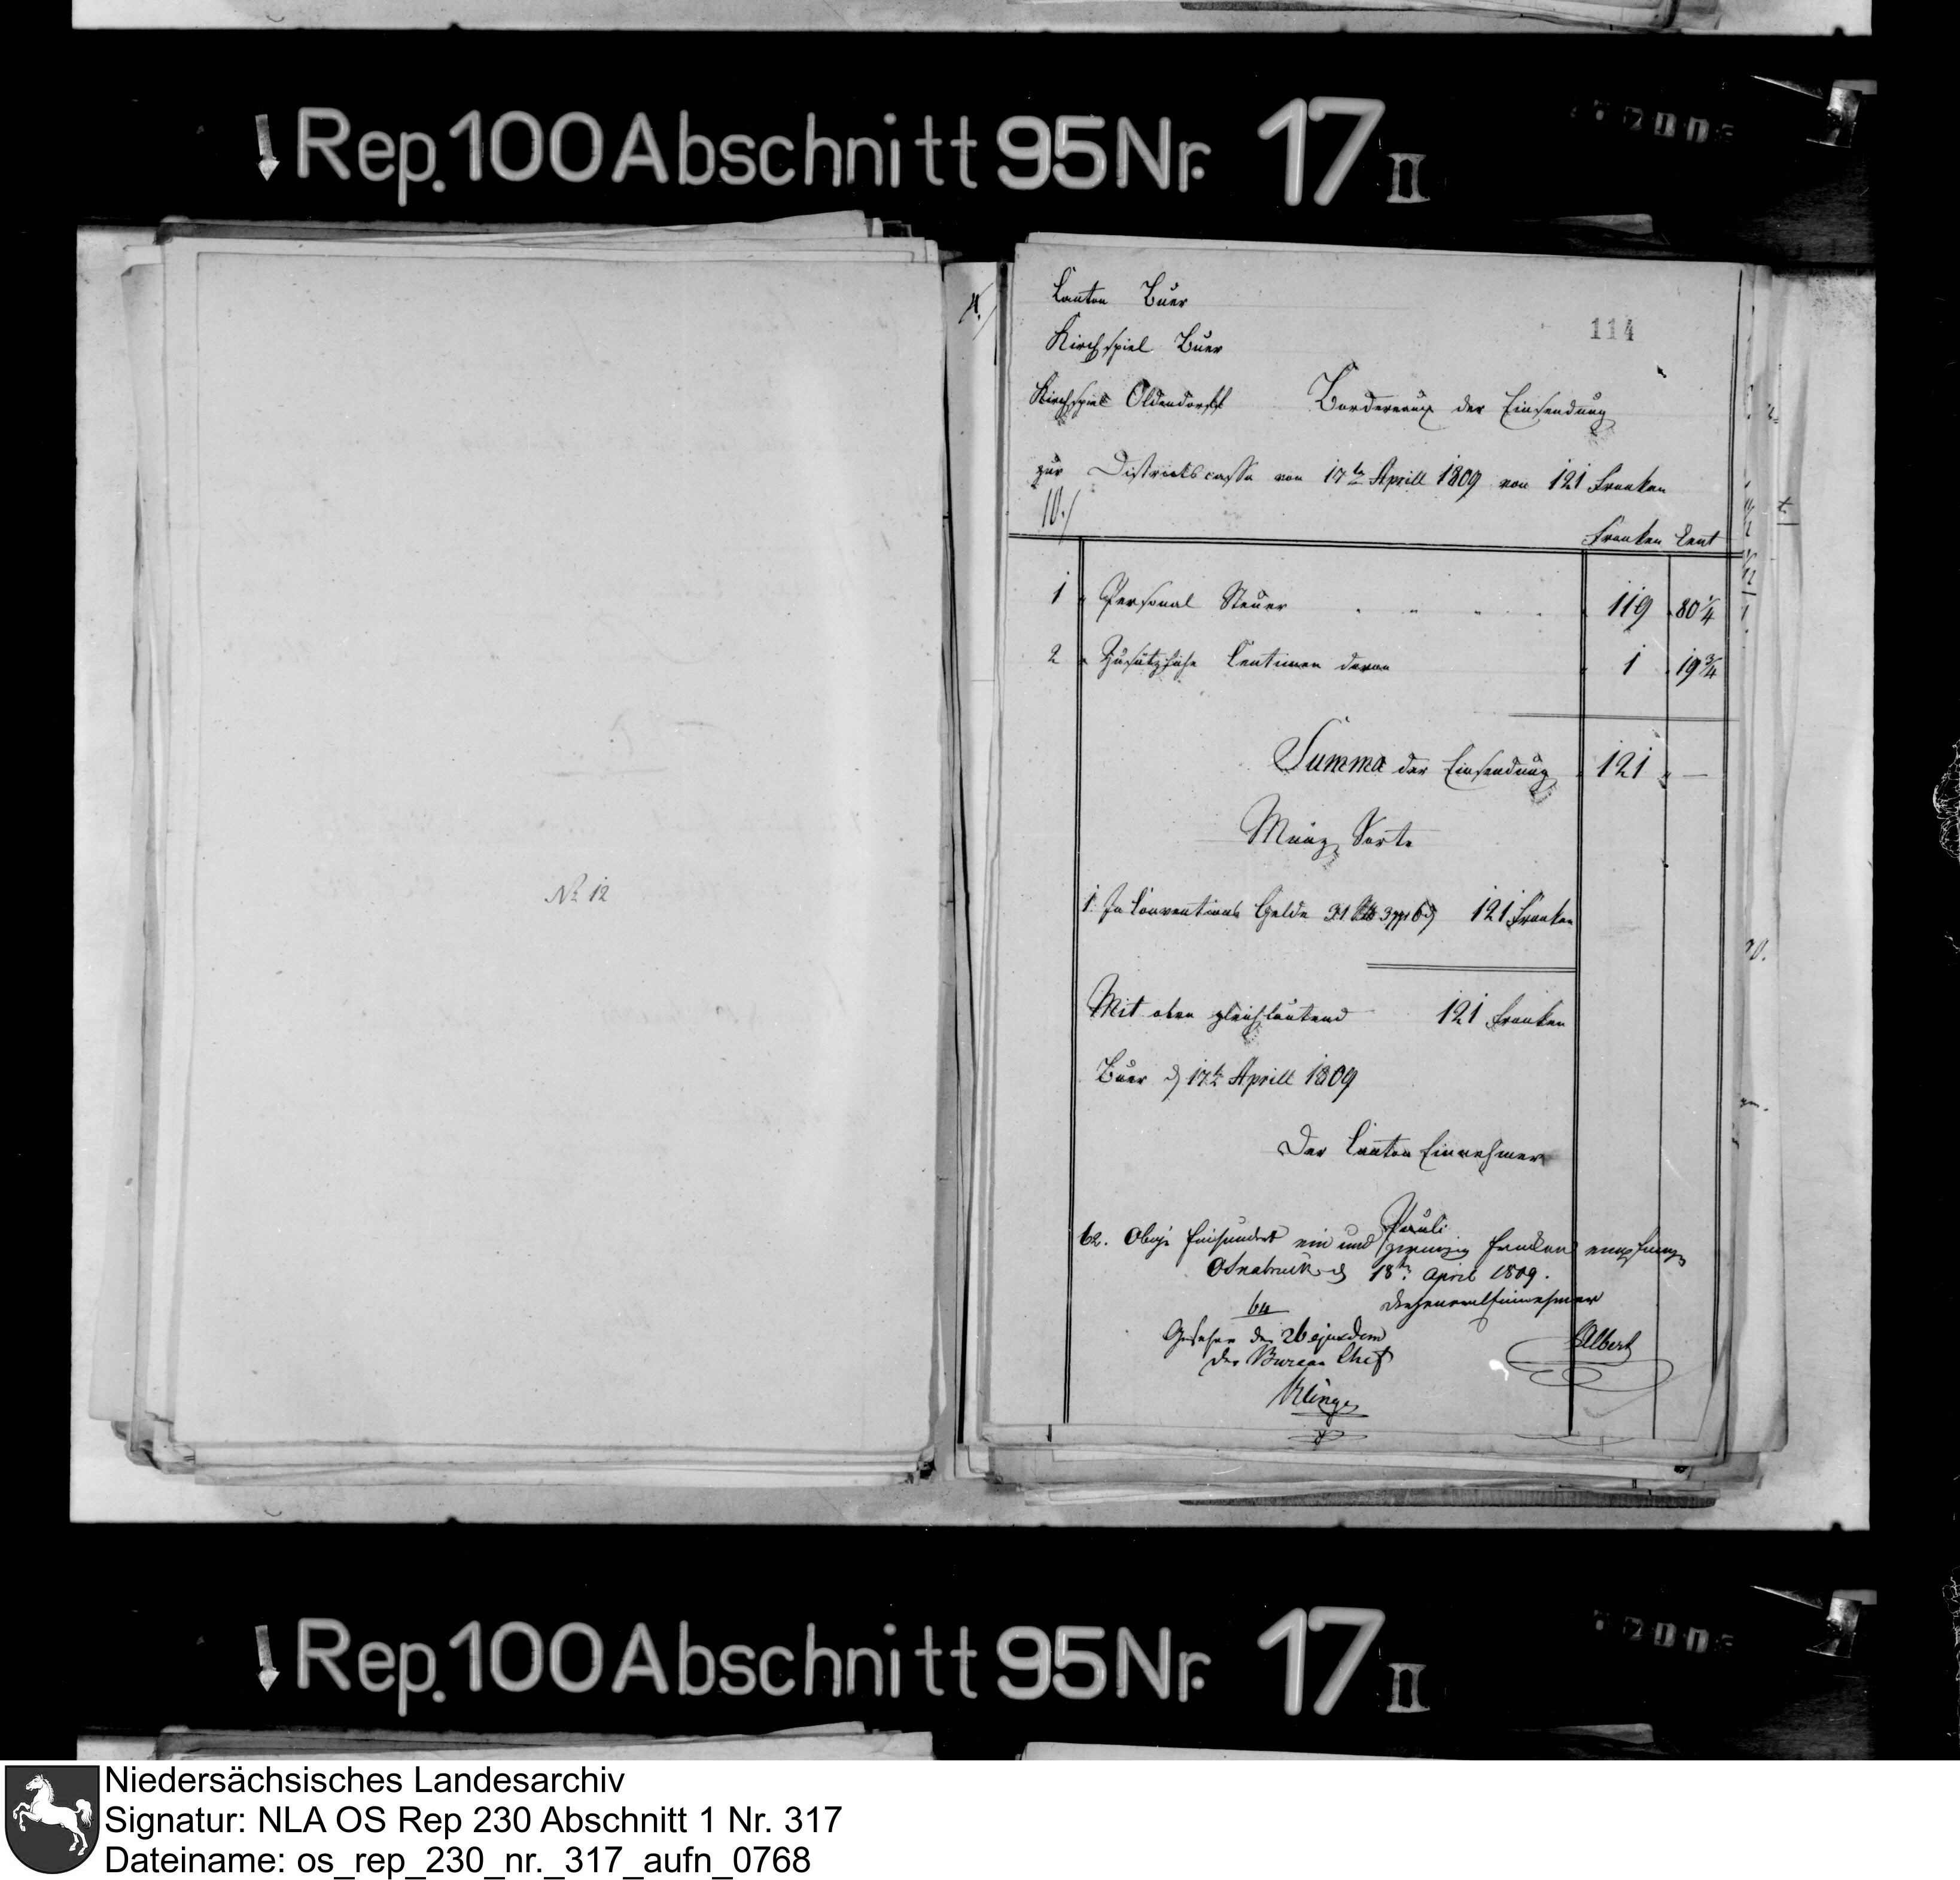 ↓ Rep. 100 Abschnitt 95 Nr. 17 II
No 12
114
Canton Buer
Kirchspiel Buer
Kirchspiel Oldendorff Bordereaux der Einsendung
zur Districtscasse von 17ten Aprill 1809 von 121 Franken
10./
Franken Cent
1 Personal Steuer 119 80 1/4
2 Zusätzliche Centimen davon 1 19 3/4
Summa der Einsendung 121 —
Münz Sorte
1. In Conventions Gelde 31 3 6 121 Franken
Mit oben gleichlautend 121 Franken
Buer d 17te Aprill 1809
Der Canton Einnehmer
Pauli
62. Obige Einhundert ein und zwanzig Franken empfangen
Osnabrück d 18ten April 1809.
der Generaleinnehmer
Gesehen den 26 ejusdem
Albert
Der Bureau Chef
Klinge
↓ Rep. 100 Abschnitt 95 Nr. 17 II
Niedersächsisches Landesarchiv
Signatur: NLA OS Rep 230 Abschnitt 1 Nr. 317
Dateiname: os_rep_230_nr._317_aufn_0768